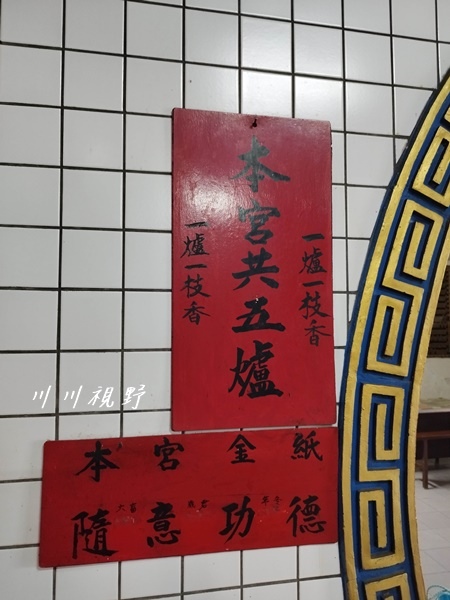 本宮共五爐
一爐一枝香
一爐一枝香
本宮金紙
隨意功德
川川視野